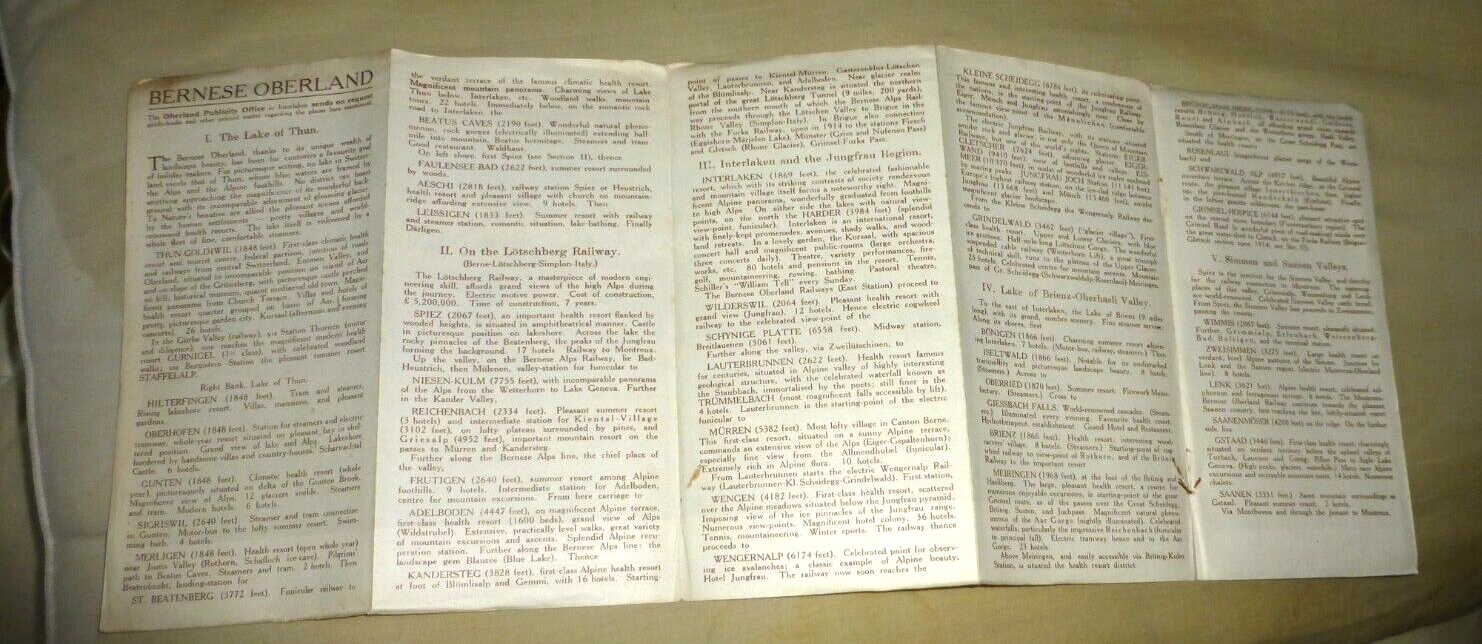 BERNESE OBERLAND
The Oberland Publicity Office in Interlaken sends on request
guide-books and other printed matter regarding the places here mentioned
I. The Lake of Thun.
The Bernese Oberland, thanks to its unique wealth of
landscape beauty, has been for centuries a favourite goal
of holiday-makers. For picturesque setting, no lake in Switzer-
land excels that of Thun, whose blue waters are framed by
the Alps and the Alpine foothills. No district can boast
anything approaching the magnificence of its wonderful back-
ground with its incomparable adornment of glaciers.
To Nature's beauties are allied the pleasant scenes afforded
by the human settlements pretty villages and world-
renowned health resorts. The lake itself is enlivened by a
whole fleet of fine, comfortable steamers.
THUN-GOLDIWIL (1848 feet). First-class climatic health
resort and tourist centre, federal garrison, junction of roads
and railways from central Switzerland, Emmen Valley, and
Jura, situated in incomparable position on island of Aar
and on slope of the Grüsisberg, with picturesque castle perched
on hill; historical museum, quaint mediaeval old town. Magni-
ficent panorama from Church Terrace. Villas and hotels of
health resort quarter grouped on banks of Aar, forming
pretty, picturesque garden city. Kursaal (afternoon and evening
concerts). 26 hotels.
In the Gürbe Valley (railway), via Station Thurnen (motor
and diligence) one reaches the magnificent modern health
resort GURNIGEL (1st class), with celebrated woodland
walks; via Burgistein Station the pleasant summer resort
STAFFELALP.
Right Bank, Lake of Thun.
HILTERFINGEN (1848 feet). Tram and steamer.
Rising lakeshore resort. Villas, mansions, and pleasant
gardens.
OBERHOFEN (1848 feet). Station for steamers and electric
tramway, whole-year resort situated on pleasant bay in shel-
tered position. Grand view of lake and Alps. Lakeshore
bordered by handsome villas and country-houses. Scharnachtal
Castle. 6 hotels.
GUNTEN (1848 feet). Climatic health resort (whole
year), picturesquely situated on delta of the Gunten Brook.
Magnificent view of Alps, 12 glaciers visible. Steamers
and tram. Modern hotels. 6 hotels.
SIGRISWIL (2640 feet). Steamer and tram connection
in Gunten. Motor-bus to the lofty summer resort. Swim-
ming bath. 4 hotels.
MERLIGEN (1848 feet). Health resort (open whole year)
near Justis Valley (Rothorn, Schafloch ice-cave). Pilgrims'
path to Beatus Caves. Steamers and tram. 2 hotels. Then
Beatenbucht, landing-station for
ST. BEATENBERG (3772 feet). Funicular railway to
the verdant terrace of the famous climatic health resort.
Magnificent mountain panorama. Charming views of Lake
Thun below, Interlaken, etc. Woodland walks, mountain
tours. 22 hotels. Immediately below, on the romantic rock
road to Interlaken, the
BEATUS CAVES (2190 feet). Wonderful natural pheno-
menon, rock gorges (electrically illuminated) extending half-
mile into mountain. Beatus hermitage. Steamers and tram
Good restaurant. Waldhaus.
On left shore, first Spiez (see Section II), thence
FAULENSEE-BAD (2622 feet), summer resort surrounded
by woods.
AESCHI (2818 feet), railway station Spiez or Heustrich,
health resort and pleasant village with church on mountain-
ridge affording extensive view. 9 hotels. Then
LEISSIGEN (1833 feet). Summer resort with railway
and steamer station, romantic situation, lake-bathing. Finally
Därligen.
II. On the Lötschberg Railway.
(Berne-Lötschberg-Simplon-Italy.)
The Lötschberg Railway, a masterpiece of modern engi-
neering skill, affords grand views of the high Alps during
the journey. Electric motive power. Cost of construction,
£ 5,200,000. Time of construction, 7 years.
SPIEZ (2067 feet), an important health resort flanked by
wooded heights, is situated in amphitheatrical manner. Castle
in picturesque position on lakeshore. Across the lake the
rocky pinnacles of the Beatenberg, the peaks of the Jungfrau
forming the background. 17 hotels. Railway to Montreux.
Up the valley, on the Bernese Alps Railway, lie Bad-
Heustrich, then Mülenen, valley-station for funicular to
NIESEN-KULM (7755 feet), with incomparable panorama
of the Alps from the Wetterhorn to Lake Geneva. Further
in the Kander Valley,
REICHENBACH (2334 feet). Pleasant summer resort
(3 hotels) and intermediate station for Kiental-Village
(3102 feet), on lofty plateau surrounded by pines, and
Griesalp (4952 feet), important mountain resort on the
passes to Mürren and Kandersteg.
Further along the Bernese Alps line, the chief place of
the valley,
FRUTIGEN (2640 feet), summer resort among Alpine
foothills. 9 hotels. Intermediate station for Adelboden,
centre for mountain excursions. From here carriage to
ADELBODEN (4447 feet), on magnificent Alpine terrace,
first-class health resort (1600 beds), grand view of Alps
(Wildstrubel). Extensive, practically level walks, great variety
of mountain excursions and ascents. Splendid Alpine recu-
peration station. Further along the Bernese Alps line: the
landscape gem Blausee (Blue Lake). Thence
KANDERSTEG (3828 feet), first-class Alpine health resort
at foot of Blümlisalp and Gemmi, with 16 hotels. Starting-
point of passes to Kiental-Mürren, Gasterenklus-Lötschen
Valley, Lauterbrunnen, and Adelboden. Near glacier realm
of the Blümlisalp. Near Kandersteg is situated the northern
portal of the great Lötschberg Tunnel (9 miles, 200 yards),
from the southern mouth of which the Bernese Alps Rail-
way proceeds through the Lötschen Valley to Brigue in the
Rhone Valley (Simplon-Italy). In Brigue also connection
with the Furka Railway, open in 1914 to the stations Fiesch
(Eggishorn-Märjelen Lake), Münster (Gries and Nufenen Pass)
and Gletsch (Rhone Glacier), Grimsel-Furka Pass.
III. Interlaken and the Jungfrau Region.
INTERLAKEN (1869 feet), the celebrated fashionable
resort, which with its striking contrasts of society rendezvous
and mountain village itself forms a noteworthy sight. Magni-
ficent Alpine panorama, wonderfully graduated from foothills
to high Alps. On either side the lakes with natural view-
points, on the north the HARDER (3984 feet) (splendid
view-point, funicular). Interlaken is an international resort,
with finely-kept promenades, avenues, shady walks, and wood-
land retreats. In a lovely garden, the Kursaal, with spacious
concert hall and magnificent public rooms (large orchestra,
three concerts daily). Theatre, variety performances, fire-
works, etc. 80 hotels and pensions in the resort. Tennis,
golf, mountaineering, rowing, bathing. Pastoral theatre,
Schiller's "William Tell" every Sunday.
The Bernese Oberland Railways (East Station) proceed to
WILDERSWIL (2064 feet). Pleasant health resort with
grand view (Jungfrau). 12 hotels. Hence electric cogwheel
railway to the celebrated view-point of the
SCHYNIGE PLATTE (6558 feet). Midway station,
Breitlauenen (5061 feet).
Further along the valley, via Zweilütschinen, to
LAUTERBRUNNEN (2622 feet). Health resort famous
for centuries, situated in Alpine valley of highly interesting
geological structure, with the celebrated waterfall known as
the Staubbach, immortalised by the poets; still finer is the
TRÜMMELBACH (most magnificent falls accessible by lift).
4 hotels. Lauterbrunnen is the starting-point of the electric
funicular to
MÜRREN (5382 feet). Most lofty village in Canton Berne.
This first-class resort, situated on a sunny Alpine terrace,
commands an extensive view of the Alps (Eiger-Gspaltenhorn);
especially fine view from the Allmendhubel (funicular).
Extremely rich in Alpine flora. 10 hotels.
From Lauterbrunnen starts the electric Wengernalp Rail-
way (Lauterbrunnen-Kl. Scheidegg-Grindelwald). First station,
WENGEN (4182 feet). First-class health resort, scattered
over the Alpine meadows situated below the Jungfrau pyramid.
Imposing view of the ice pinnacles of the Jungfrau range.
Numerous view-points. Magnificent hotel colony. 36 hotels.
Tennis, mountaineering. Winter sports. The railway thence
proceeds to
WENGERNALP (6174 feet). Celebrated point for observ-
ing ice avalanches; a classic example of Alpine beauty.
Hotel Jungfrau. The railway now soon reaches the
KLEINE SCHEIDEGG (6786 feet), its culminating point.
This famous and interesting health resort, a rendezvous of
the nations, is the starting point of the Jungfrau Railway.
Eiger, Mönch and Jungfrau astoundingly near. Close
by the famous view-point of the Männlichen (comfortable
footpath).
The electric Jungfrau Railway, with its stations, situated
amidst rock and ice, is not only the Queen of Mountain
Railways, but one of the world's wonders. Stations EIGER-
GLETSCHER (7624 feet), adjoining glacier, EIGER-
WAND (9410 feet), view of foothills and valleys, EIS-
MEER (10370 feet), in midst of wonderful world of eternal
snow and gleaming peaks. JUNGFRAU JOCH Station (11341 feet),
Europe's highest railway station, on the ice-ridge between
Jungfrau (13668 feet) and Mönch (13468 feet), amidst
grandiose glacier landscape.
From the Kleine Scheidegg the Wengernalp Railway de-
scends to
GRINDELWALD (3462 feet) ("glacier village"). First-
class health resort. Upper and Lower Glaciers, with blue
ice grottoes. Half-mile-long Lütschine Gorge. The wonderful
suspended cable railway (Wetterhorn Lift), a great triumph
of technical skill, runs to the plateau of the Upper Glacier.
25 hotels. Celebrated centre for mountain ascents. Starting-
point of Gr. Scheidegg-(Schwarzwaldalp-Rosenlaui) Meiringen.
IV. Lake of Brienz-Oberhasli Valley.
To the east of Interlaken, the Lake of Brienz (9 miles
long), with its grand, sombre scenery. Fine steamer service.
Along its shores, first
BÖNIGEN (1866 feet). Charming summer resort adjoin-
ing Interlaken. 7 hotels. (Motor-bus, railway, steamers.) Then
ISELTWALD (1866 feet). Notable for its undisturbed
tranquillity and picturesque landscape beauty. 8 hotels.
(Steamers.) Across to
OBERRIED (1870 feet). Summer resort. Firework Manu-
factory. (Steamers.) Cross to
GIESSBACH FALLS. World-renowned cascades. (Steam-
ers.) Illuminated every evening. Favourite health resort.
Hydrotherapeut. establishment. Grand Hotel and Restaurant.
BRIENZ (1866 feet). Health resort; interesting wood-
carvers' village. 8 hotels. (Steamers.) Starting-point of cog-
wheel railway to view-point of Rothorn, and of the Brünig
Railway to the important resort
MEIRINGEN (1968 feet), at the foot of the Brünig and
Hasliberg. The large, pleasant health resort, a centre for
numerous enjoyable excursions, is starting-point of the great
Grimsel route, as of the passes over the Great Scheidegg,
Brünig, Susten, and Jochpass. Magnificent natural pheno-
menon of the Aar Gorge (nightly illuminated). Celebrated
waterfalls, particularly the impressive Reichenbach (funicular
to principal fall). Electric tramway hence and to the Aar
Gorge. 23 hotels.
Above Meiringen, and easily accessible via Brünig-Kulm
Station, is situated the health resort district
ROSENLAUI (magnificent glacier gorge of the Weiss-
bach) and
SCHWARZWALD ALP (4957 feet). Beautiful Alpine
GRIMSEL-HOSPICE (6144 feet),
V. Simmen and Saanen Valleys.
Spiez is the junction for the Simmen Valley, and therefor
are world-renowned. Celebrated Simmen Valley cattle breed.
From Spiez, the Simmen Valley line proceeds to Zweisimmen,
passing the resorts:
WIMMIS (2067 feet). Summer resort, pleasantly situated.
Further, Grimmialp, Erlenbach, Weissenburg-
Bad, Boltigen, and the terminal station
ZWEISIMMEN (3225 feet). Large health resort on
verdant, level Alpine bottoms of the Simmen. Junction for
Lenk and the Saanen region (electric Montreux-Oberland
line). 8 hotels.
LENK (3621 feet). Alpine health resort, celebrated sul-
phurous and ferruginous springs. 6 hotels. The Montreux-
Bernese Oberland Railway continues towards the pleasant
Saanen country, first reaching the fine, loftily-situated resort
SAANENMÖSER (4208 feet) on the ridge. On the further
side lies
GSTAAD (3446 feet). First-class health resort, charmingly
situated on verdant territory before the upland valleys of
Turbach, Lauenen and Gsteig. Pillon Pass to Aigle-Lake
Geneva. (High peaks, glaciers, waterfalls.) Many easy Alpine
excursions and enjoyable mountain tours. 14 hotels. Numerous
chalets.
SAANEN (3351 feet). Same mountain surroundings as
Gstaad. Pleasant summer resort. 2 hotels.
Via Montbovon and through the Jaman to Montreux.